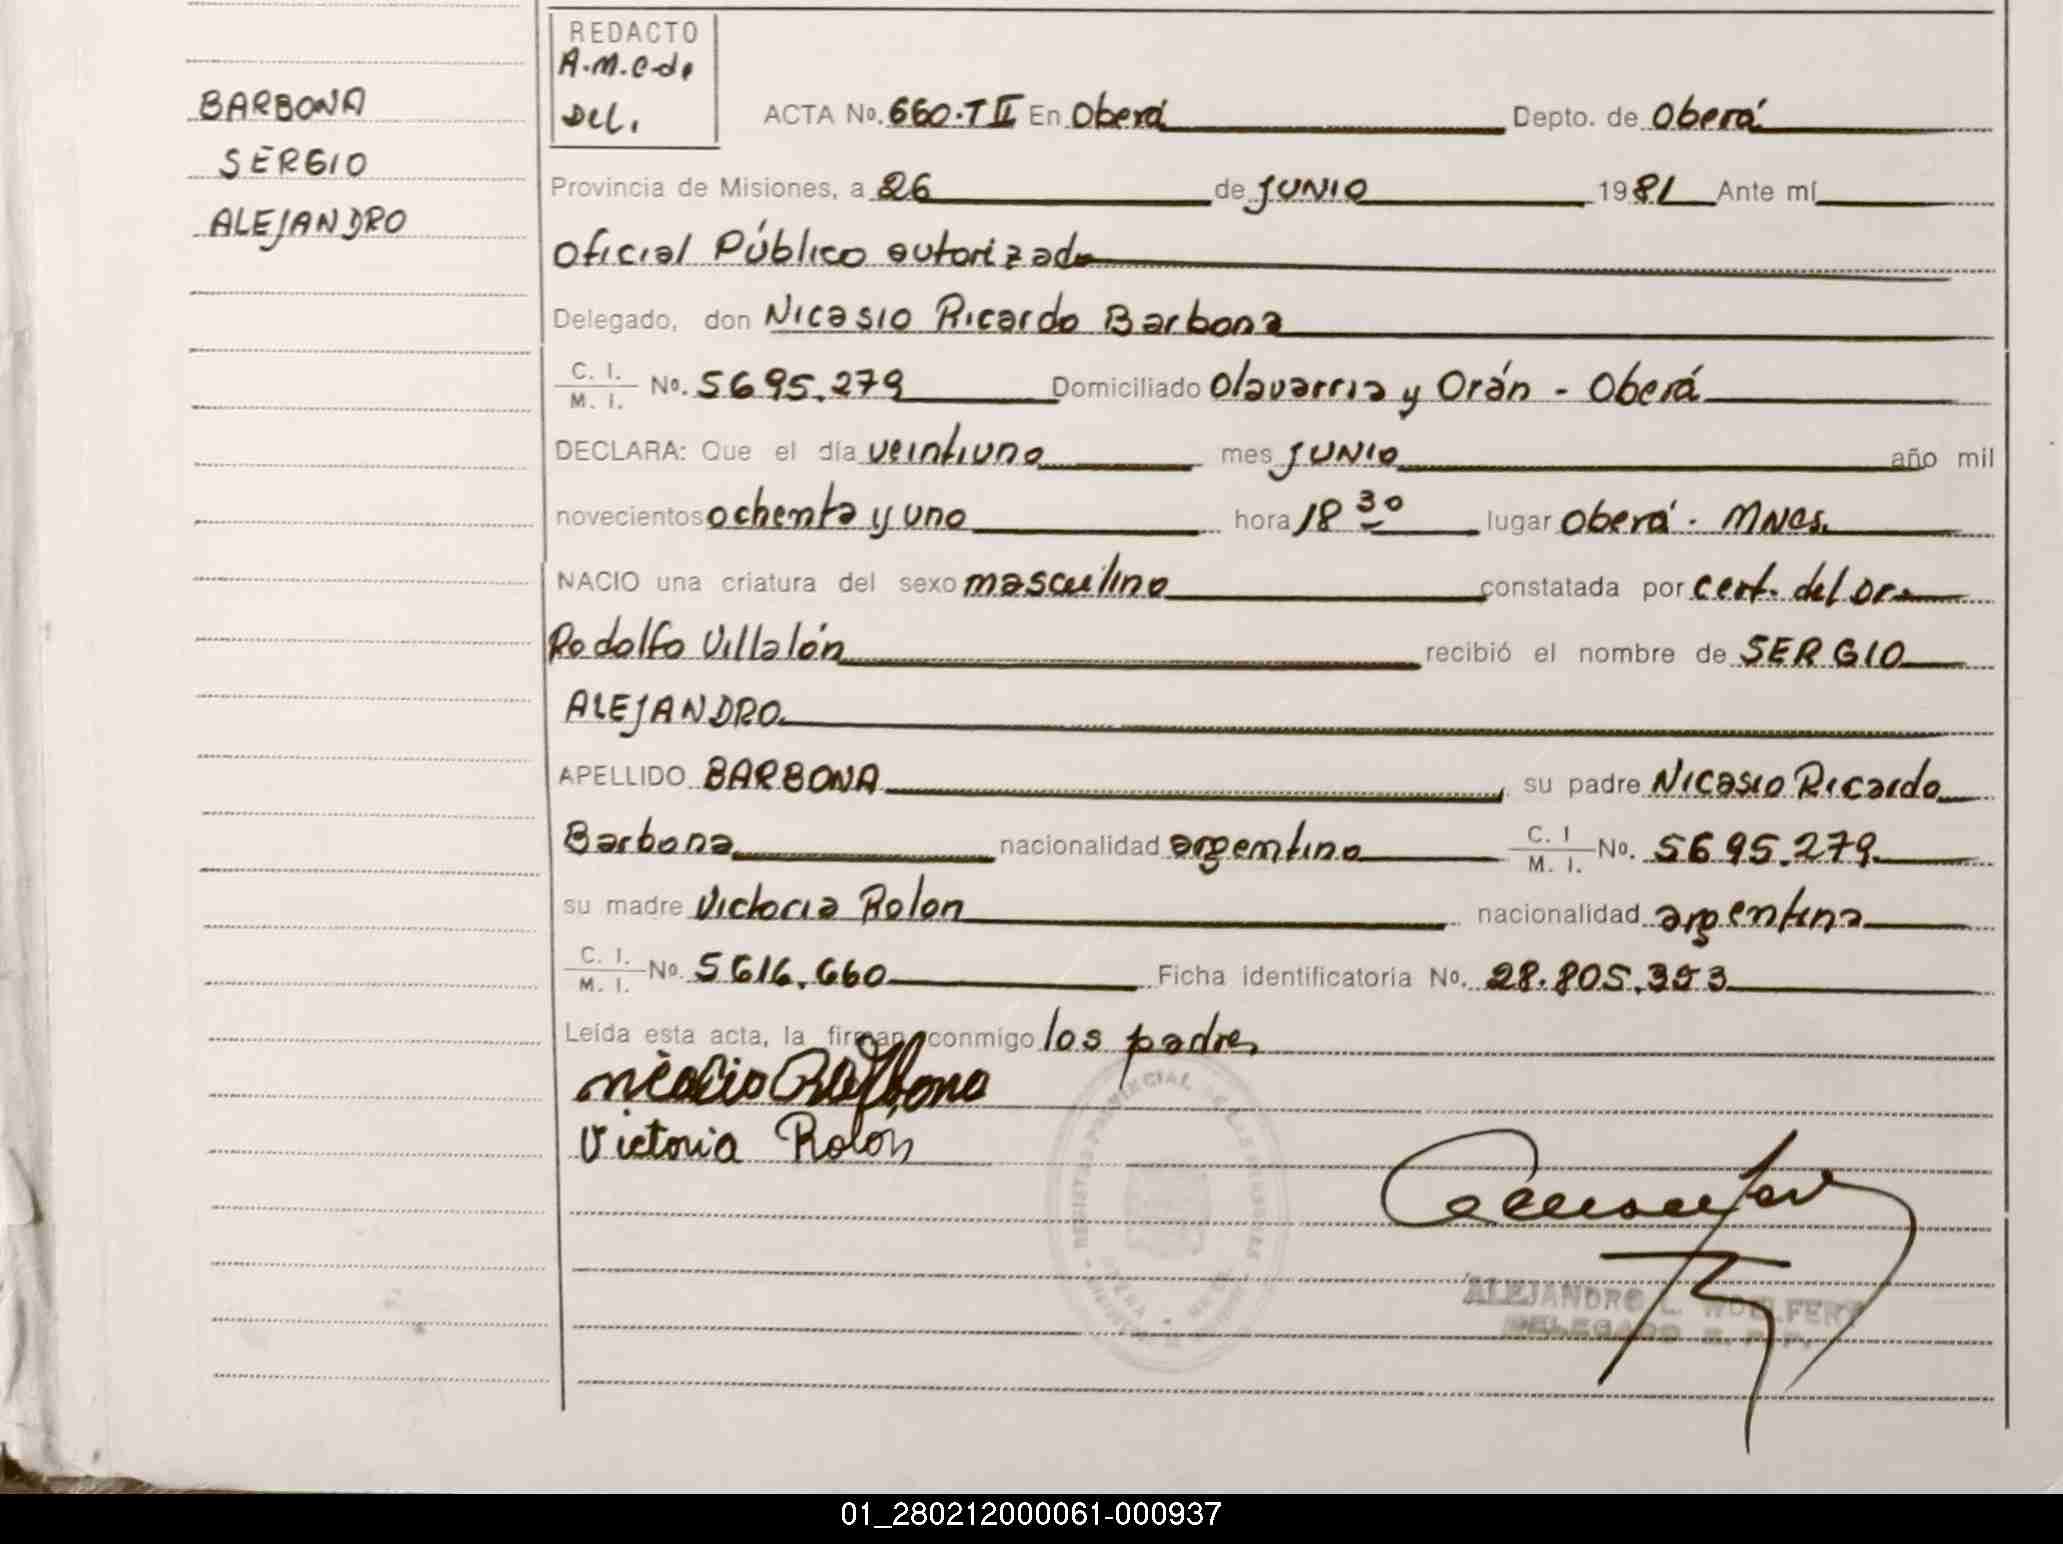 REDACTO
A.M.C.d.
Del.
BARBONA
SERGIO
ALEJANDRO
ACTA No. 660.T II En Oberá Depto. de Oberá
Provincia de Misiones, a 26 de JUNIO 1981 Ante mí
Oficial Público autorizado
Delegado, don Nicasio Ricardo Barbona
C. I. / M. I. No. 5695.279 Domiciliado Olavarria y Orán - Oberá
DECLARA: Que el día veintiuno mes JUNIO año mil
novecientos ochenta y uno hora 18 30 lugar Oberá. Mnes.
NACIO una criatura del sexo masculino constatada por cert. del Dr.
Rodolfo Villalón recibió el nombre de SERGIO
ALEJANDRO
APELLIDO BARBONA su padre Nicasio Ricardo
Barbona nacionalidad argentino C. I / M. I. No. 5695.279
su madre Victoria Rolon nacionalidad argentina
C. I. / M. I. No. 5616.660 Ficha identificatoria No. 28.805.353
Leída esta acta, la firman conmigo los padres
Nicasio R Barbona
Victoria Rolon
ALEJANDRO L. WOELFERT
DELEGADO R. P. P.
01_280212000061-000937